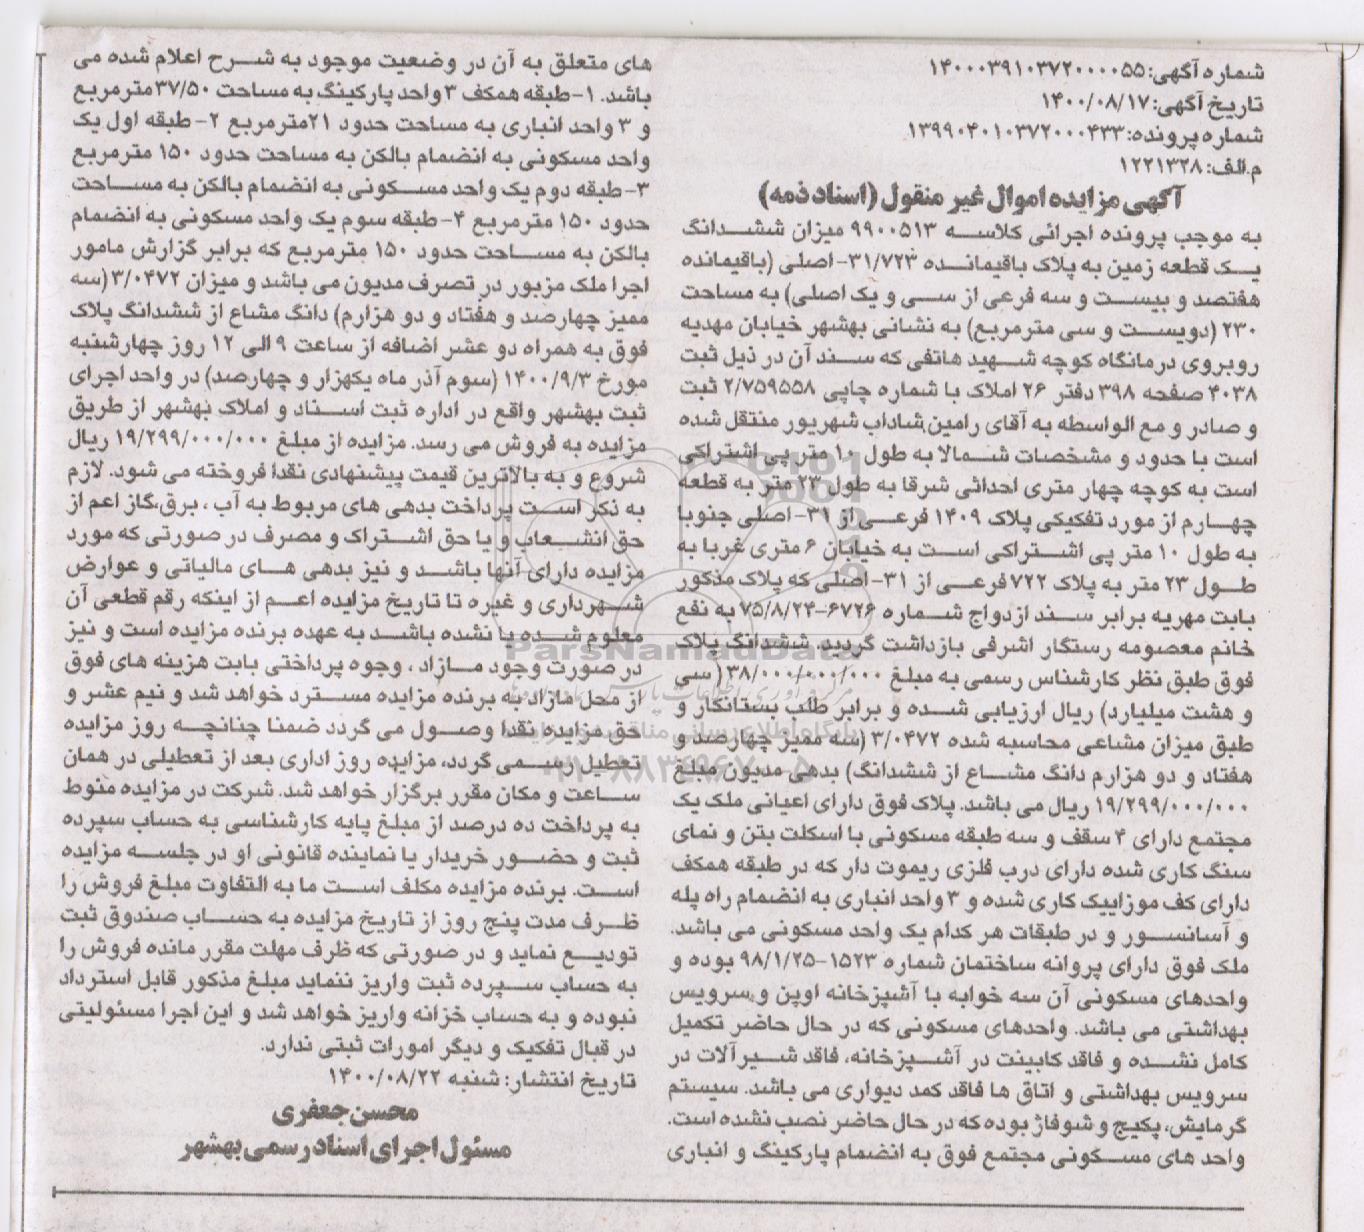 شماره آگهی: ۱۴۰۰۰۳۹۱۰۳۷۲۰۰۰۰۵۵
تاریخ آگهی: ۱۴۰۰/۰۸/۱۷
شماره پرونده: ۱۳۹۹۰۴۰۱۰۳۷۲۰۰۰۴۳۳
م.الف: ۱۲۲۱۳۲۸
آگهی مزایده اموال غیر منقول (اسناد ذمه)
به موجب پرونده اجرائی کلاسه ۹۹۰۰۵۱۳ میزان ششدانگ
یک قطعه زمین به پلاک باقیمانده ۳۱/۷۲۳-اصلی (باقیمانده
هفتصد و بیست و سه فرعی از سی و یک اصلی) به مساحت
۲۳۰ (دویست و سی مترمربع) به نشانی بهشهر خیابان مهدیه
روبروی درمانگاه کوچه شهید هاتفی که سند آن در ذیل ثبت
۴۰۳۸ صفحه ۳۹۸ دفتر ۲۶ املاک با شماره چاپی ۲/۷۵۹۵۵۸ ثبت
و صادر و مع الواسطه به آقای رامین شاداب شهریور منتقل شده
است با حدود و مشخصات شمالا به طول ۱۰ متر پی اشتراکی
است به کوچه چهار متری احداثی شرقا به طول ۲۳ متر به قطعه
چهارم از مورد تفکیکی پلاک ۱۴۰۹ فرعی از ۳۱-اصلی جنوبا
به طول ۱۰ متر پی اشتراکی است به خیابان ۶ متری غربا به
طول ۲۳ متر به پلاک ۷۲۲ فرعی از ۳۱-اصلی که پلاک مذکور
بابت مهریه برابر سند ازدواج شماره ۶۷۲۶-۷۵/۸/۲۴ به نفع
خانم معصومه رستگار اشرفی بازداشت گردید. ششدانگ پلاک
فوق طبق نظر کارشناس رسمی به مبلغ ۳۸/۰۰۰/۰۰۰/۰۰۰ (سی
و هشت میلیارد) ریال ارزیابی شده و برابر طلب بستانکار و
طبق میزان مشاعی محاسبه شده ۳/۰۴۷۲ (سه ممیز چهارصد و
هفتاد و دو هزارم دانگ مشاع از ششدانگ) بدهی مدیون مبلغ
۱۹/۲۹۹/۰۰۰/۰۰۰ ریال می باشد. پلاک فوق دارای اعیانی ملک یک
مجتمع دارای ۴ سقف و سه طبقه مسکونی با اسکلت بتن و نمای
سنگ کاری شده دارای درب فلزی ریموت دار که در طبقه همکف
دارای کف موزاییک کاری شده و ۳ واحد انباری به انضمام راه پله
و آسانسور و در طبقات هر کدام یک واحد مسکونی می باشد.
ملک فوق دارای پروانه ساختمان شماره ۱۵۲۳-۹۸/۱/۲۵ بوده و
واحدهای مسکونی آن سه خوابه با آشپزخانه اوپن و سرویس
بهداشتی می باشد. واحدهای مسکونی که در حال حاضر تکمیل
کامل نشده و فاقد کابینت در آشپزخانه، فاقد شیرآلات در
سرویس بهداشتی و اتاق ها فاقد کمد دیواری می باشد. سیستم
گرمایش، پکیج و شوفاژ بوده که در حال حاضر نصب نشده است.
واحد های مسکونی مجتمع فوق به انضمام پارکینگ و انباری
های متعلق به آن در وضعیت موجود به شرح اعلام شده می
باشد. ۱-طبقه همکف ۳ واحد پارکینگ به مساحت ۳۷/۵۰ مترمربع
و ۳ واحد انباری به مساحت حدود ۲۱ مترمربع ۲- طبقه اول یک
واحد مسکونی به انضمام بالکن به مساحت حدود ۱۵۰ مترمربع
۳-طبقه دوم یک واحد مسکونی به انضمام بالکن به مساحت
حدود ۱۵۰ مترمربع ۴- طبقه سوم یک واحد مسکونی به انضمام
بالکن به مساحت حدود ۱۵۰ مترمربع که برابر گزارش مامور
اجرا ملک مزبور در تصرف مدیون می باشد و میزان ۳/۰۴۷۲ (سه
ممیز چهارصد و هفتاد و دو هزارم) دانگ مشاع از ششدانگ پلاک
فوق به همراه دو عشر اضافه از ساعت ۹ الی ۱۲ روز چهارشنبه
مورخ ۱۴۰۰/۹/۳ (سوم آذر ماه یکهزار و چهارصد) در واحد اجرای
ثبت بهشهر واقع در اداره ثبت اسناد و املاک بهشهر از طریق
مزایده به فروش می رسد. مزایده از مبلغ ۱۹/۲۹۹/۰۰۰/۰۰۰ ریال
شروع و به بالاترین قیمت پیشنهادی نقدا فروخته می شود. لازم
به ذکر است پرداخت بدهی های مربوط به آب ، برق،گاز اعم از
حق انشعاب و یا حق اشتراک و مصرف در صورتی که مورد
مزایده دارای آنها باشد و نیز بدهی های مالیاتی و عوارض
شهرداری و غیره تا تاریخ مزایده اعم از اینکه رقم قطعی آن
معلوم شده یا نشده باشد به عهده برنده مزایده است و نیز
در صورت وجود مازاد ، وجوه پرداختی بابت هزینه های فوق
از محل مازاد به برنده مزایده مسترد خواهد شد و نیم عشر و
حق مزایده نقدا وصول می گردد ضمنا چنانچه روز مزایده
تعطیل رسمی گردد، مزایده روز اداری بعد از تعطیلی در همان
ساعت و مکان مقرر برگزار خواهد شد. شرکت در مزایده منوط
به پرداخت ده درصد از مبلغ پایه کارشناسی به حساب سپرده
ثبت و حضور خریدار یا نماینده قانونی او در جلسه مزایده
است. برنده مزایده مکلف است ما به التفاوت مبلغ فروش را
ظرف مدت پنج روز از تاریخ مزایده به حساب صندوق ثبت
تودیع نماید و در صورتی که ظرف مهلت مقرر مانده فروش را
به حساب سپرده ثبت واریز ننماید مبلغ مذکور قابل استرداد
نبوده و به حساب خزانه واریز خواهد شد و این اجرا مسئولیتی
در قبال تفکیک و دیگر امورات ثبتی ندارد.
تاریخ انتشار: شنبه ۱۴۰۰/۰۸/۲۲
محسن جعفری
مسئول اجرای اسناد رسمی بهشهر
ParsNamadData